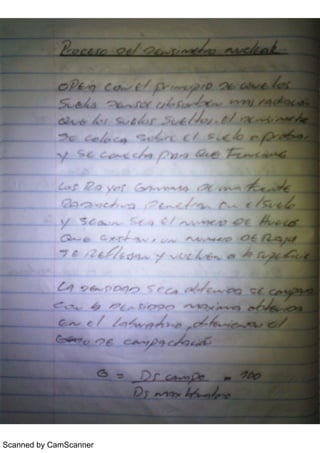 Proceso del densimetro nuclear
OPERA con el principio de que los
Suelos densos absorben mas radiacion
Que los suelos sueltos. el densimetro
se coloca sobre el suelo a probar
y se conecta para que Funcione
Los Rayos Gamma de una fuente
Radiactiva penetran en el suelo
y segun sea el numero de Huecos
que existan, un numero de Rayos
se Reflejan y vuelven a la superficie
LA densidad seca obtenida se compara
con la densidad maxima obtenida
en el Laboratorio, obteniendo el
de compactación
= Ds campo 100
Ds max
Scanned by CamScanner